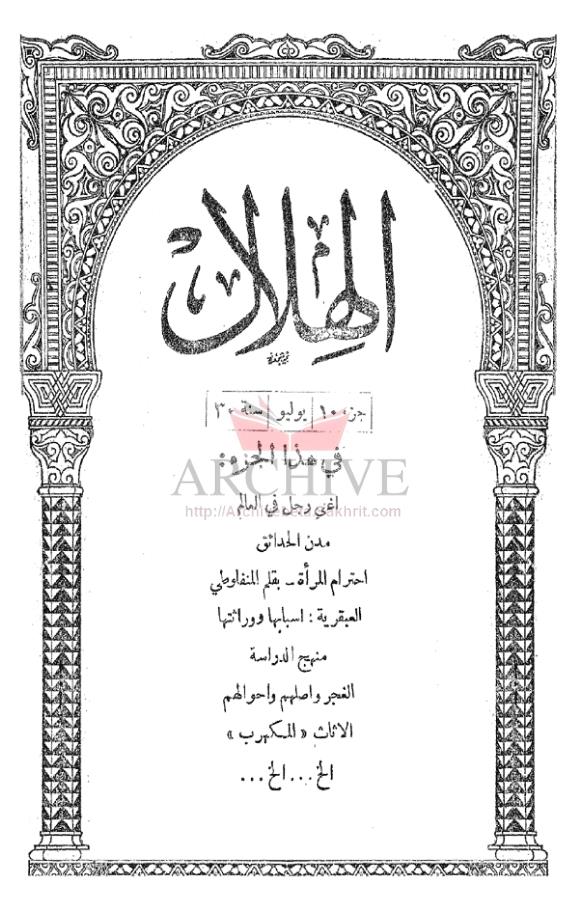 الهلال
جزء ١٠ يوليو سنة ٣٠
في هذا الجزء:
ARCHIVE
اغنى رجل في العالم
مدن الحدائق
احترام المرأة ـ بقلم المنفلوطي
العبقرية : اسبابها ووراثتها
منهج الدراسة
الغجر واصلهم واحوالهم
الاثاث « المكهرب »
الخ ... الخ ...